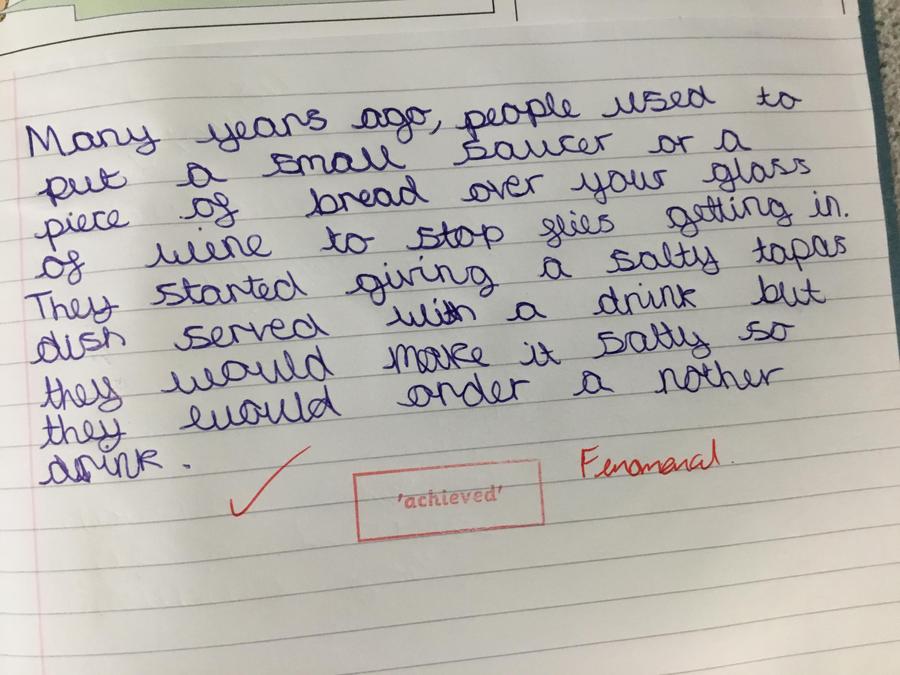 Many years ago, people used to
put a small saucer or a
piece of bread over your glass
of wine to stop flies getting in.
They started giving a salty tapas
dish served with a drink but
they would make it salty so
they would order a nother
drink.
'achieved'
Fenomenal.